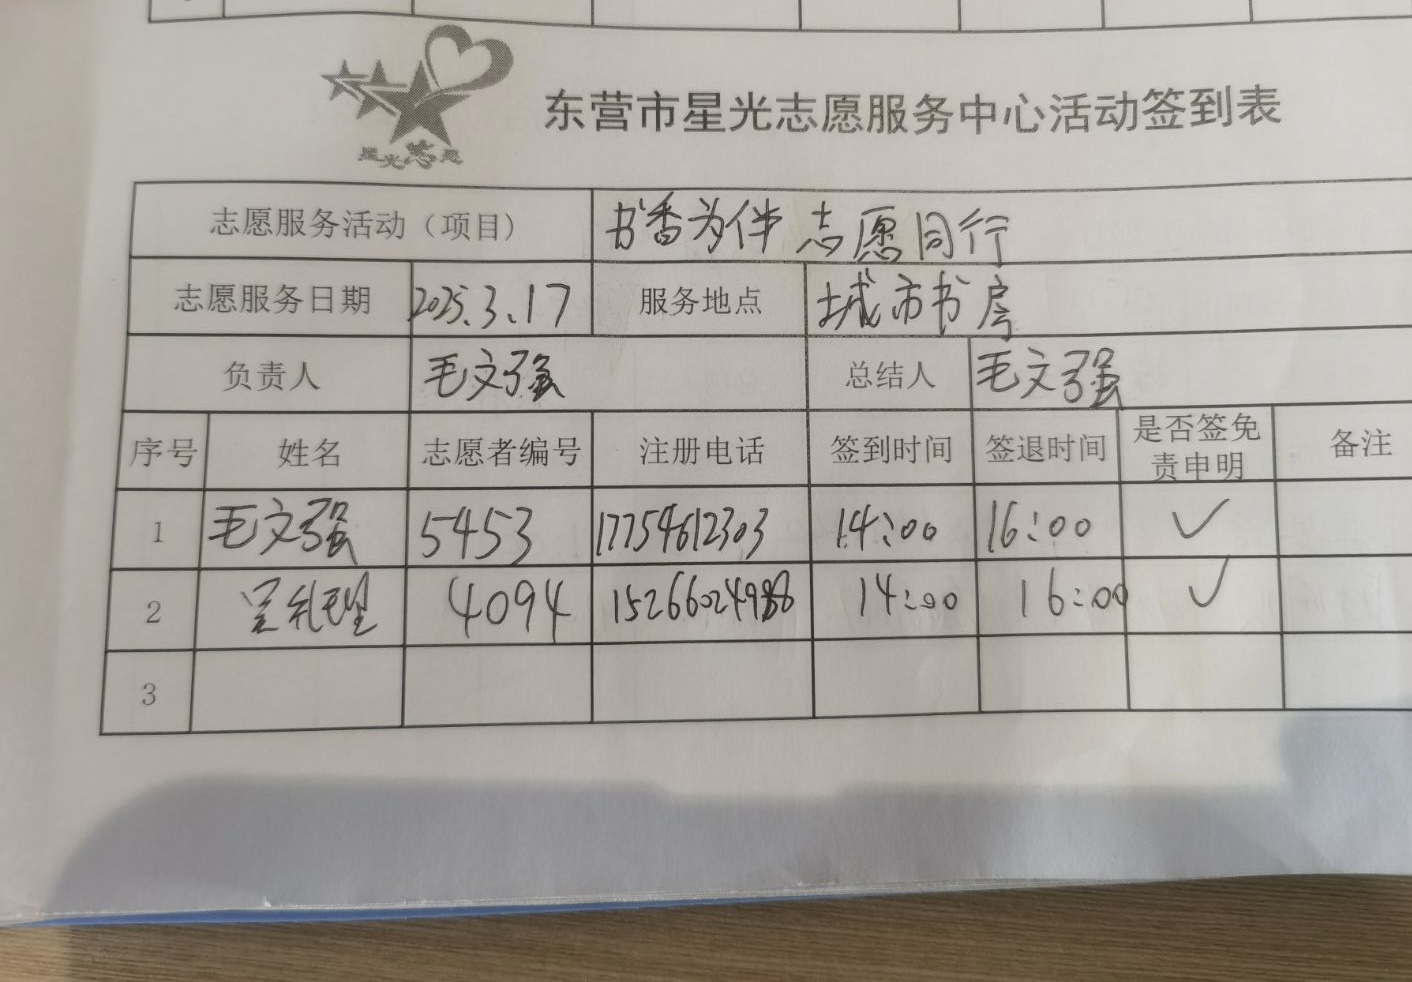 星光志愿
东营市星光志愿服务中心活动签到表
志愿服务活动（项目） 书香为伴 志愿同行
志愿服务日期 2025.3.17 服务地点 城市书房
负责人 毛文强 总结人 毛文强
序号 姓名 志愿者编号 注册电话 签到时间 签退时间 是否签免责申明 备注
1 毛文强 5453 17754612303 14:00 16:00 ✓
2 4094 14:00 16:00 ✓
3